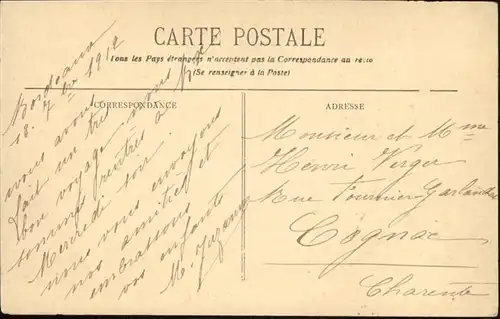 CARTE POSTALE
Tous les Pays étrangers n'acceptent pas la Correspondance au recto
(Se renseigner à la Poste)
CORRESPONDANCE
Bordeaux
18. 7bre 1912
nous avons
fait un très
bon voyage, nous
sommes rentrés à
Mercredi soir.
nous vous envoyons
nos amitiés et
embrassons
vos enfants
ADRESSE
Monsieur et Mme
Henri Verger
Rue Fournier-Garlandat
Cognac
Charente